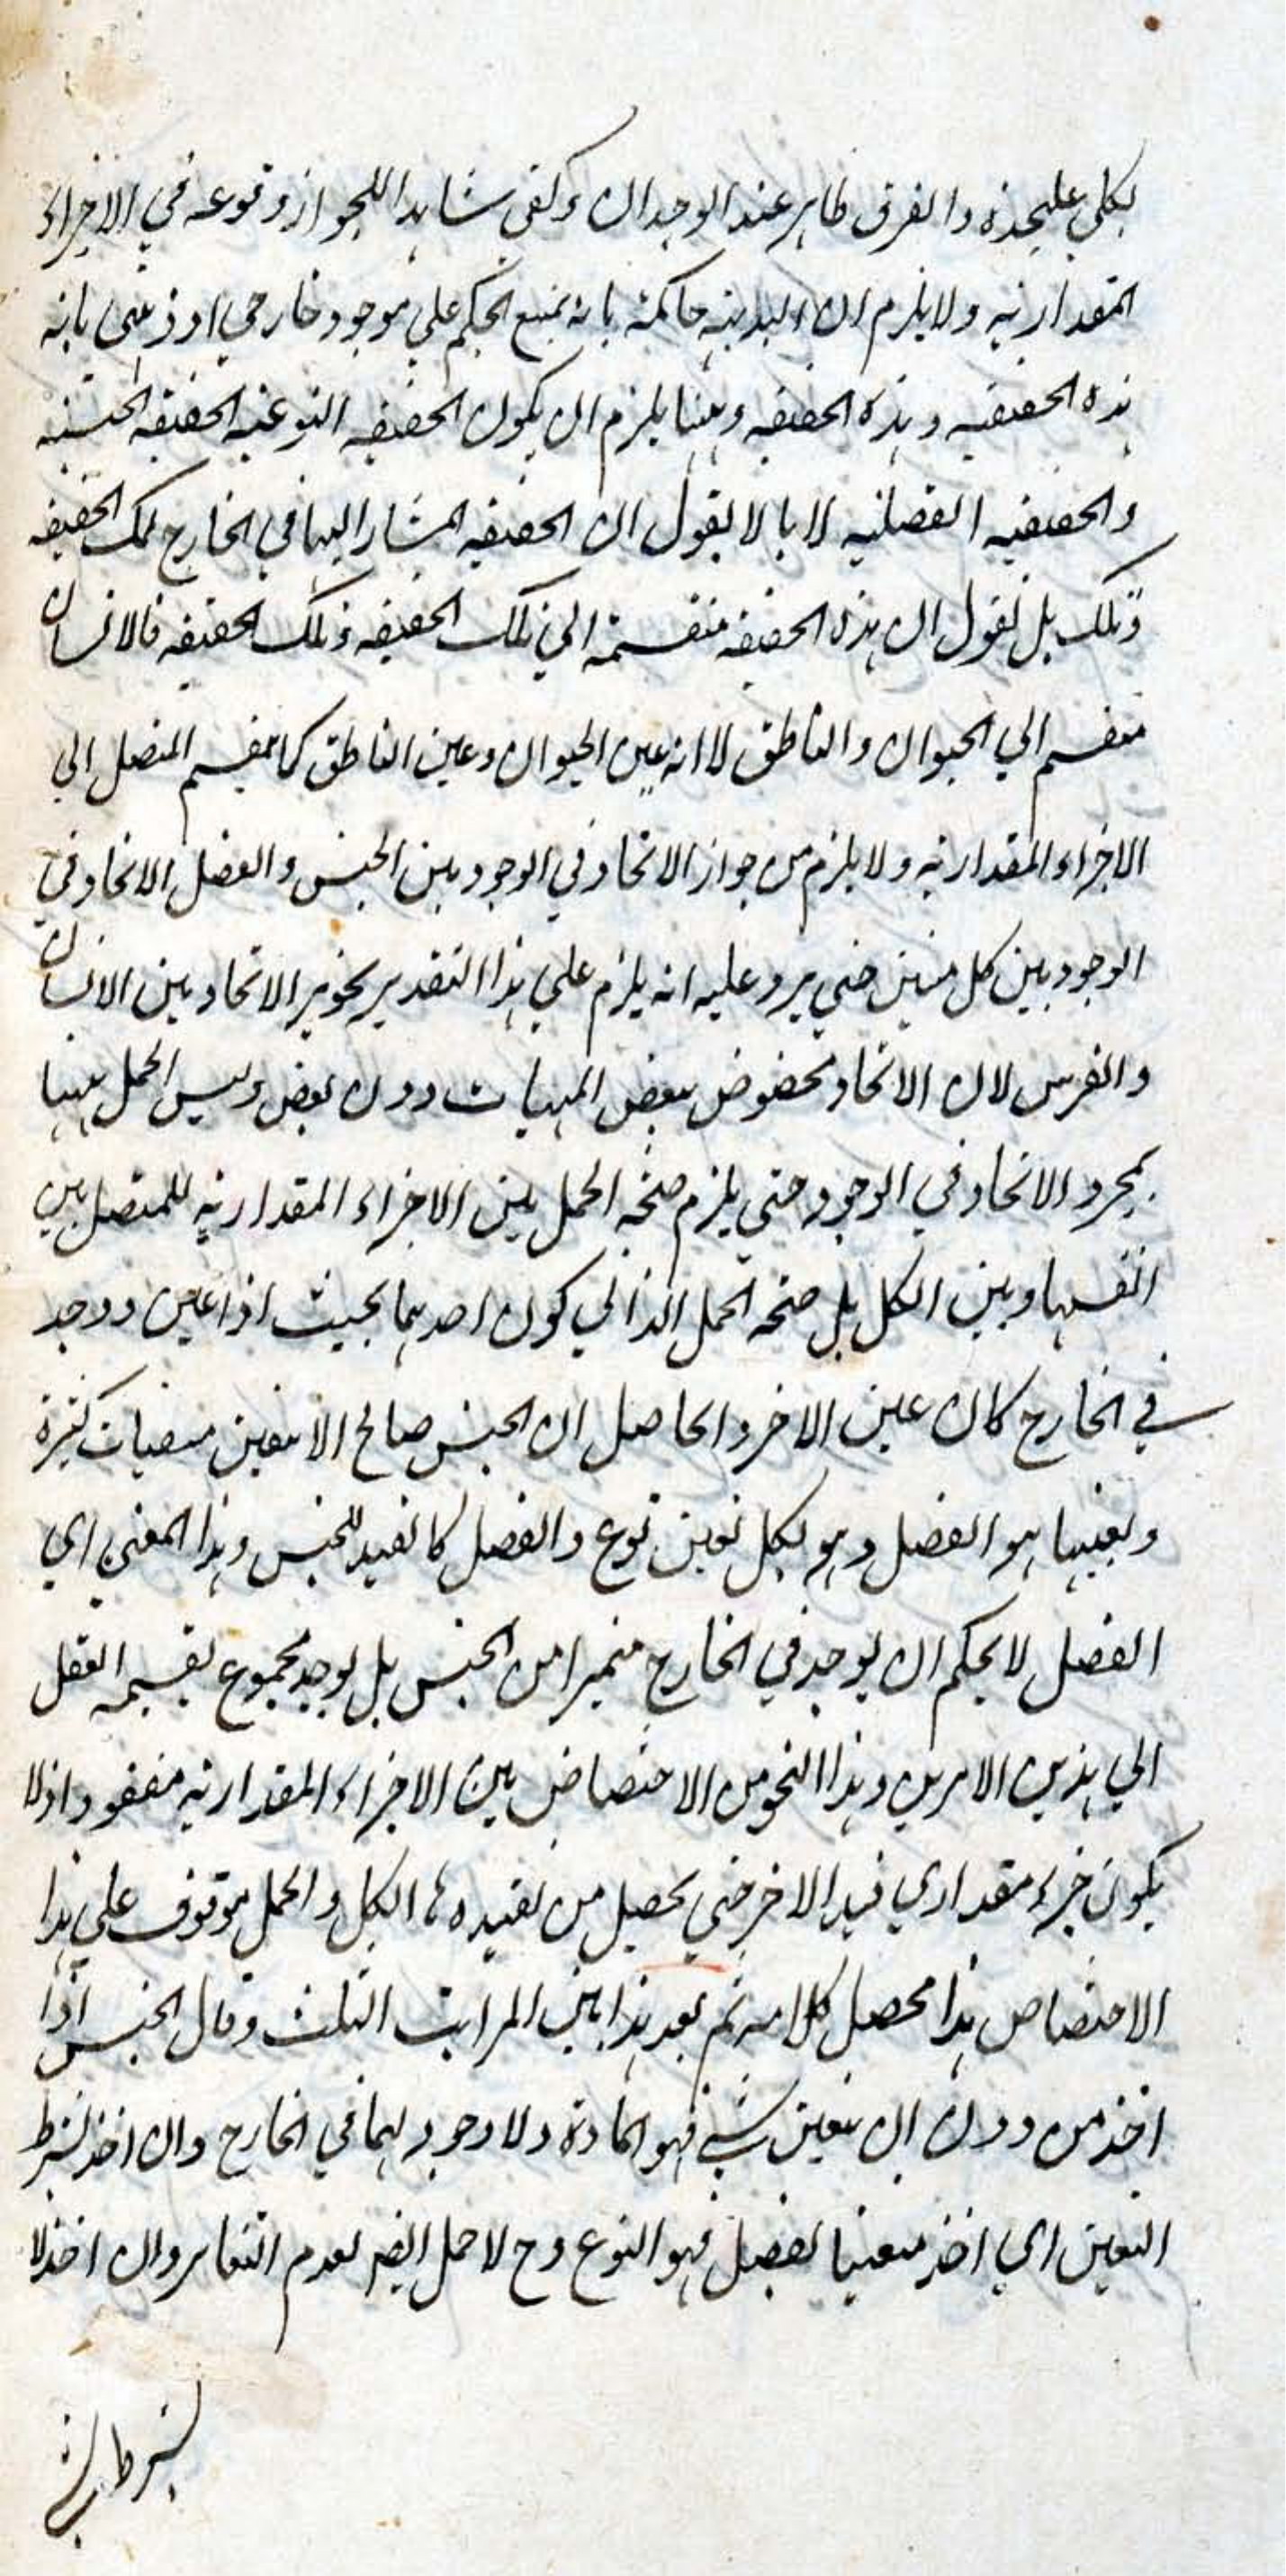 بكلي عليحدة والفرق ظاهر عند الوجدان وكفى شاهدا للجواز وقوعه في الاجزاء
المقدارية ولا يلزم ان البديهة حاكمة بانه يمتنع الحكم علي موجود خارجي او ذهني بانه
هذه الحقيقة وهذه الحقيقة وههنا يلزم ان يكون الحقيقة النوعية الحقيقة الجنسية
والحقيقة الفصلية لانا لا نقول ان الحقيقة المشار اليها في الخارج تلك الحقيقة
وتلك بل نقول ان هذه الحقيقة منقسمة الي تلك الحقيقة وتلك الحقيقة فالانسان
منقسم الي الحيوان والناطق لا انه عين الحيوان وعين الناطق كما ينقسم المتصل الي
الاجزاء المقدارية ولا يلزم من جواز الاتحاد في الوجود بين الجنس والفصل الاتحاد في
الوجود بين كل شيئين حتي يرد عليه انه يلزم علي هذا التقدير تجويز الاتحاد بين الانسان
والفرس لان الاتحاد مخصوص ببعض المهيات دون بعض وليس الحمل بينهما
بمجرد الاتحاد في الوجود حتي يلزم صحة الحمل بين الاجزاء المقدارية للمتصل بين
انفسها وبين الكل بل صحة الحمل الذاتي كون احدهما بحيث اذا عين ووجد
في الخارج كان عين الاخر والحاصل ان الجنس صالح لان يتعين بتعينات كثيرة
وتعينها هو الفصل وهو بكل تعين نوع والفصل كالقيد للجنس وهذا المعنى اي
الفصل لا يمكن ان يوجد في الخارج متميزا من الجنس بل يوجد مجموع يقسمه العقل
الي هذين الامرين وهذا النحو من الاختصاص بين الاجزاء المقدارية مفقود اذ لا
يكون جزء مقداري قيدا لاخر حتي يحصل من تقييده الكل والحمل موقوف علي هذا
الاختصاص هذا محصل كلامه ثم بعد هذا بين المراتب الثلث وقال الجنس اذا
اخذ من دون ان يتعين بشيء فهو المادة ولا وجود لها في الخارج وان اخذ بشرط
التعين اي اخذ متعينا بفصل فهو النوع وح لا حمل ايضا لعدم التغاير وان اخذ لا
بشرط شيء